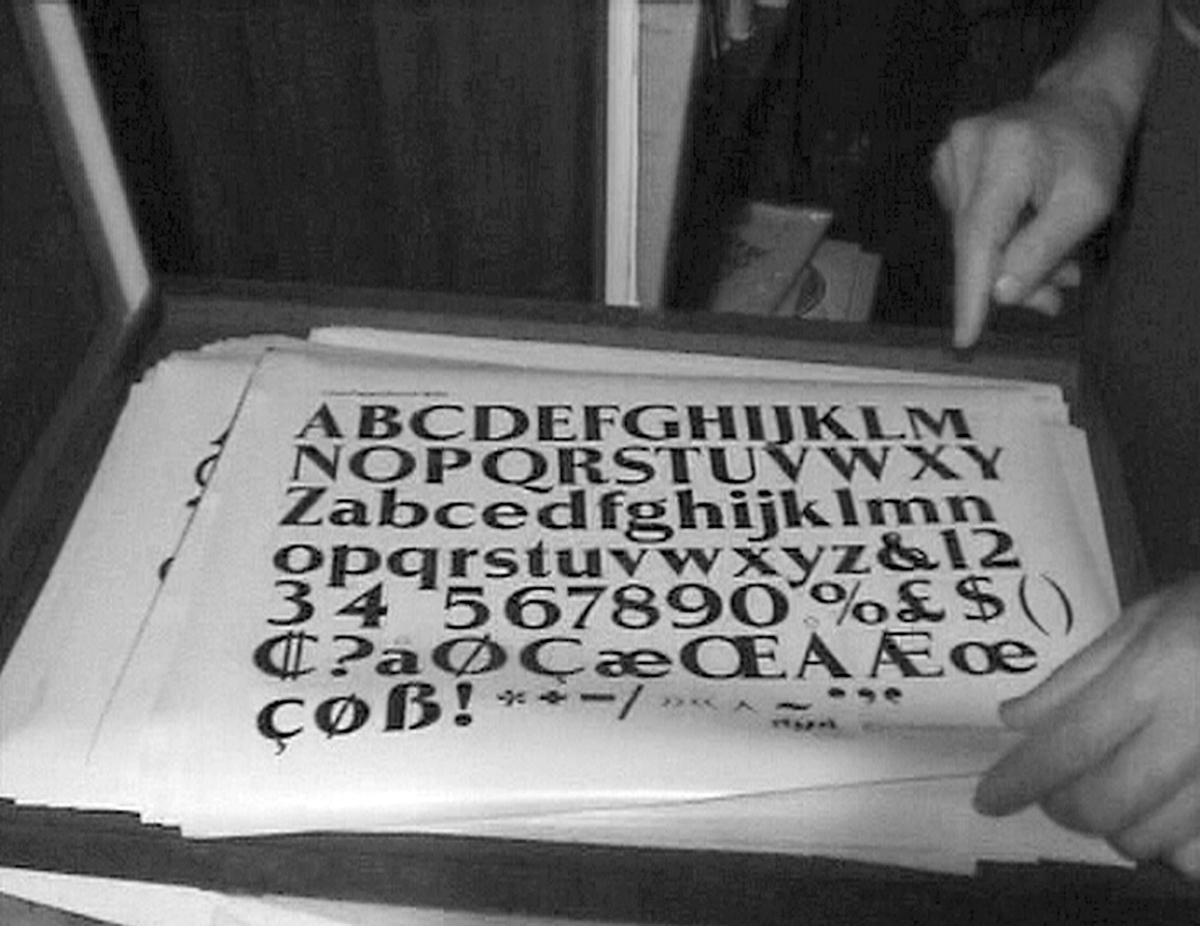 ABCDEFGHIJKLM
NOPQRSTUVWXY
Zabcedfghijklmn
opqrstuvwxyz&12
34 567890%£$()
₵?åØÇæŒÅÆœ
çøß!*+−/»«^~